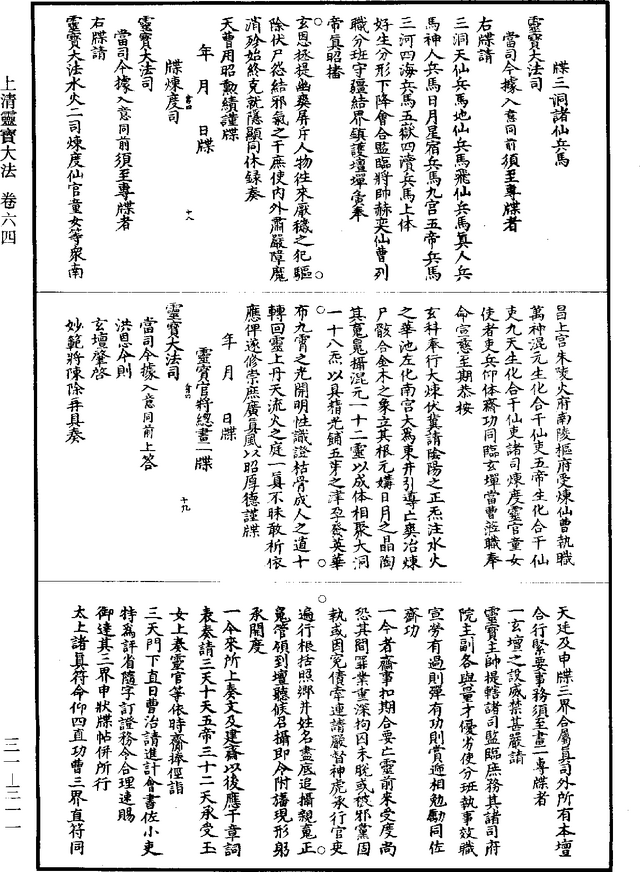 上清靈寶大法 卷六四
三一—三一一
牒三洞諸仙兵馬
靈寶大法司
當司今據入意同前須至專牒者
右牒請
三洞天仙兵馬地仙兵馬飛仙兵馬真人兵
馬神人兵馬日月星宿兵馬九宮五帝兵馬
三河四海兵馬五嶽四瀆兵馬上体
好生分形下降會合監臨將帥赫奕仙曹列
職分班守疆結界鎮護壇墠禽奉
帝真昭播
玄恩拯提幽爽屏斥人物徃來厭穢之犯驅
除伏尸怨結邪氣之干庶使內外肅嚴障魔
消殄始終克就隱顯同休録奏
天曹用昭勳績謹牒
年 月 日牒
牒煉度司
十八
靈寶大法司
當司今據入意同前須至專牒者
右牒請
靈寶大法水火二司煉度仙官童女等衆南
昌上宮朱陵火府南陵樞府受煉仙曹執職
萬神混元生化合干仙吏五帝生化合干仙
吏九天生化合干仙吏諸司煉度靈官童女
使者吏兵仰体齋功同臨玄墠當曹涖職奉
命宣慈主期恭按
玄科奉行大煉伏冀請陰陽之正炁注水火
之華池左化南宮大為東井引導亡爽冶煉
尸骸合金木之象立其根元媾日月之晶陶
其䰟䰟攝混元一十二靈以成体相聚大洞
一十八炁以具精光鋪五芽之津孕發英華
布九霄之光開明性識證枯骨成人之道十
轉回靈上丹天流火之庭一真不昧敢祈依
應俾遂修崇庶廣員風以昭厚德謹牒
年 月 日牒
靈寶官將總畫一牒
十九
靈寶大法司
當司今據入意同前上答
洪恩今則
玄壇肇啓
妙範將陳除再具奏
天廷及申牒三界合屬真司外所有本壇
合行緊要事務須至畫一專牒者
一玄壇之設威禁甚嚴請
靈寶主帥提轄諸司監臨庶務其諸司府
院主副各與量才優劣使分班執事效職
宣勞有過則彈有功則賞遞相勉勵同佐
齋功
一今者齋事扣期合要亡靈前來受度尚
恐其間罪業重深拘囚未脫或被邪黨固
執或因寃債牽連請嚴督神虎承行官吏
遍行根括照鄉井姓名盡底追攝親䰟正
䰟管領到壇聽候召攝即令附旛現形躬
承開度
一今來所上奏文及建齋以後應干章詞
表奏請三天十天五帝三十二天承受玉
女上奏靈官等依時齎捧徑詣
三天門下直日曹治請進計會書佐小吏
特為評省隨字訂證務令合理速賜
御達其三界申狀牒帖併所行
太上諸真符命仰四直功曹三界直符同